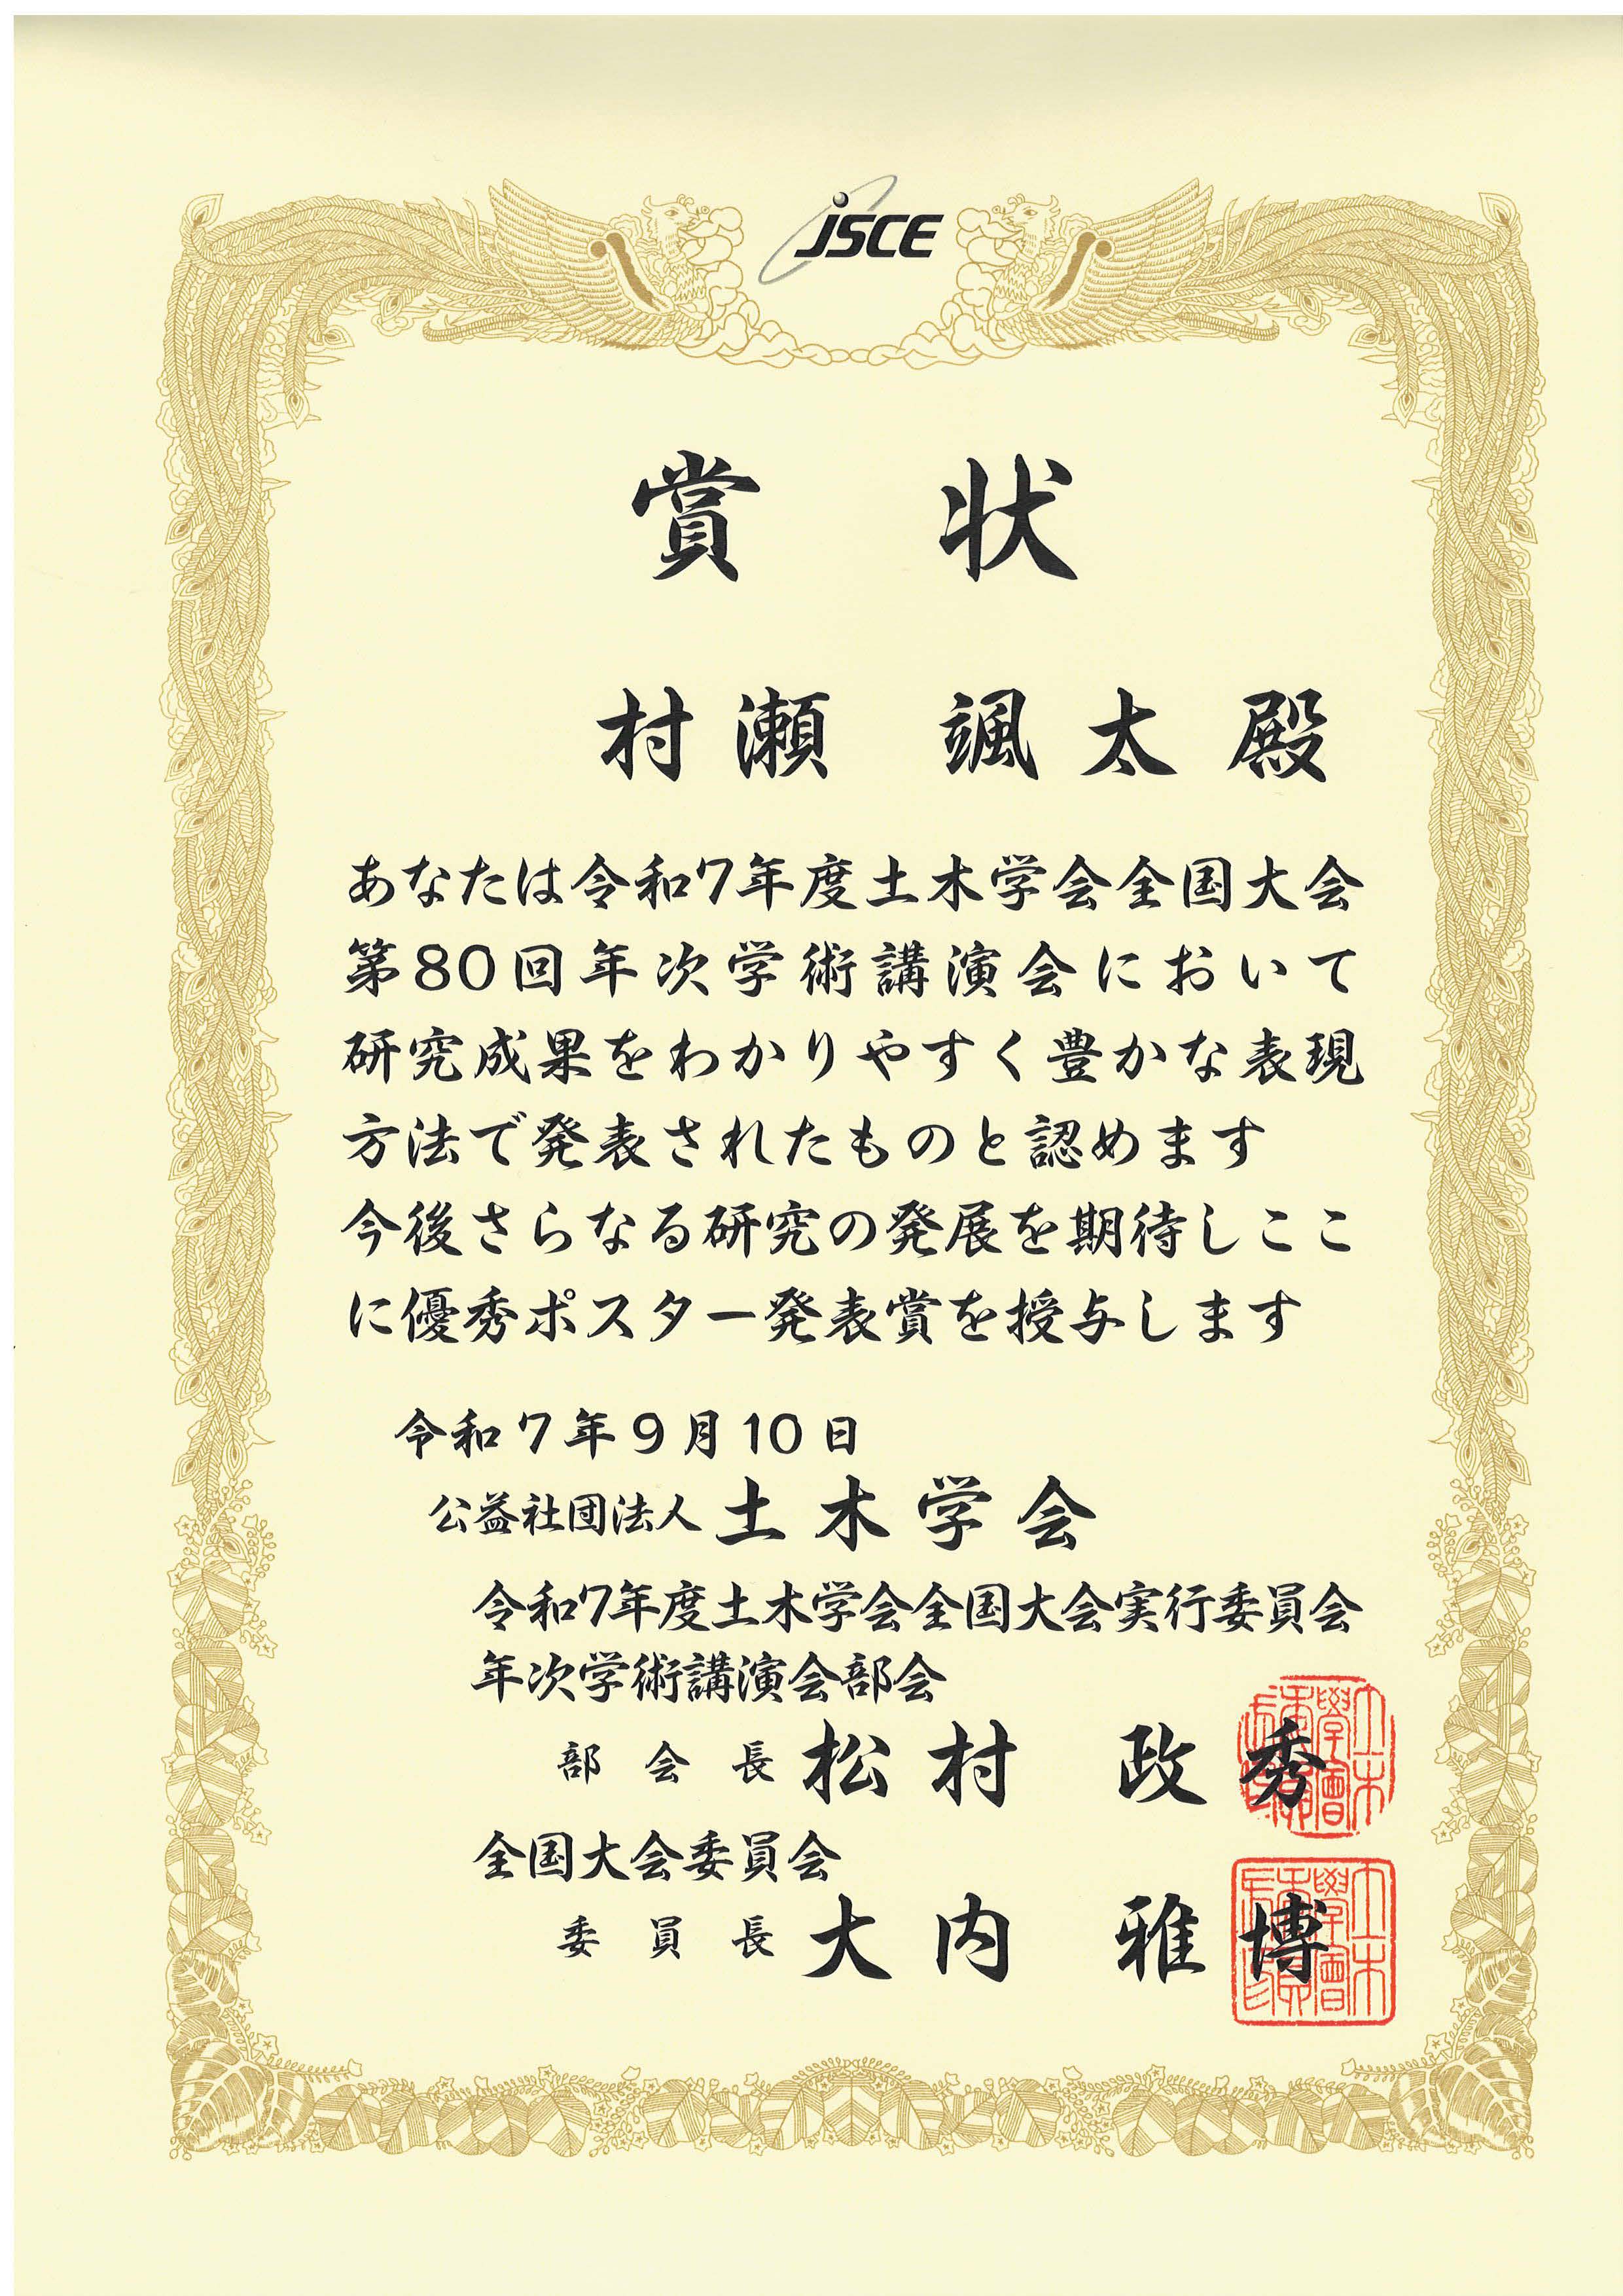 JSCE
賞 状
村瀬 颯太 殿
あなたは令和7年度土木学会全国大会
第80回年次学術講演会において
研究成果をわかりやすく豊かな表現
方法で発表されたものと認めます
今後さらなる研究の発展を期待しここ
に優秀ポスター発表賞を授与します
令和7年9月10日
公益社団法人 土木学会
令和7年度土木学会全国大会実行委員会
年次学術講演会部会
部会長 松村 政秀
全国大会委員会
委員長 大内 雅博